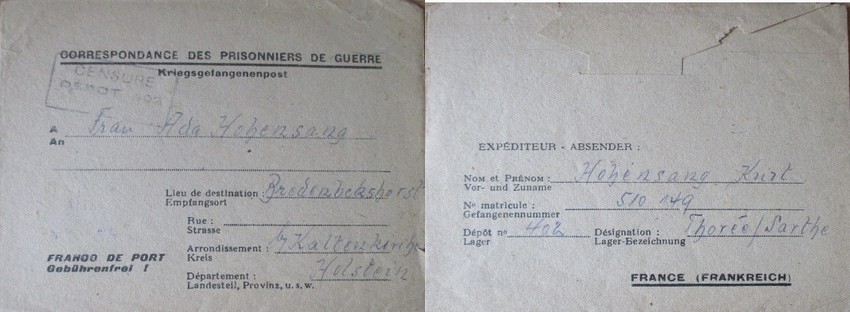 CORRESPONDANCE DES PRISONNIERS DE GUERRE
Kriegsgefangenenpost
CENSURE
DÉPOT 402
A Frau Ada Hohensang
An
Lieu de destination : Bredenbekshorst
Empfangsort
Rue :
Strasse
Arrondissement : b/ Kaltenkirchen
Kreis
FRANCO DE PORT
Gebührenfrei !
Département : Holstein
Landesteil, Provinz, u. s. w.
EXPÉDITEUR - ABSENDER :
Nom et Prénom : Hohensang Kurt
Vor- und Zuname
No matricule : 510 149
Gefangenennummer
Dépôt no 402 Désignation : Thorée/Sarthe
Lager Lager-Bezeichnung
FRANCE (FRANKREICH)